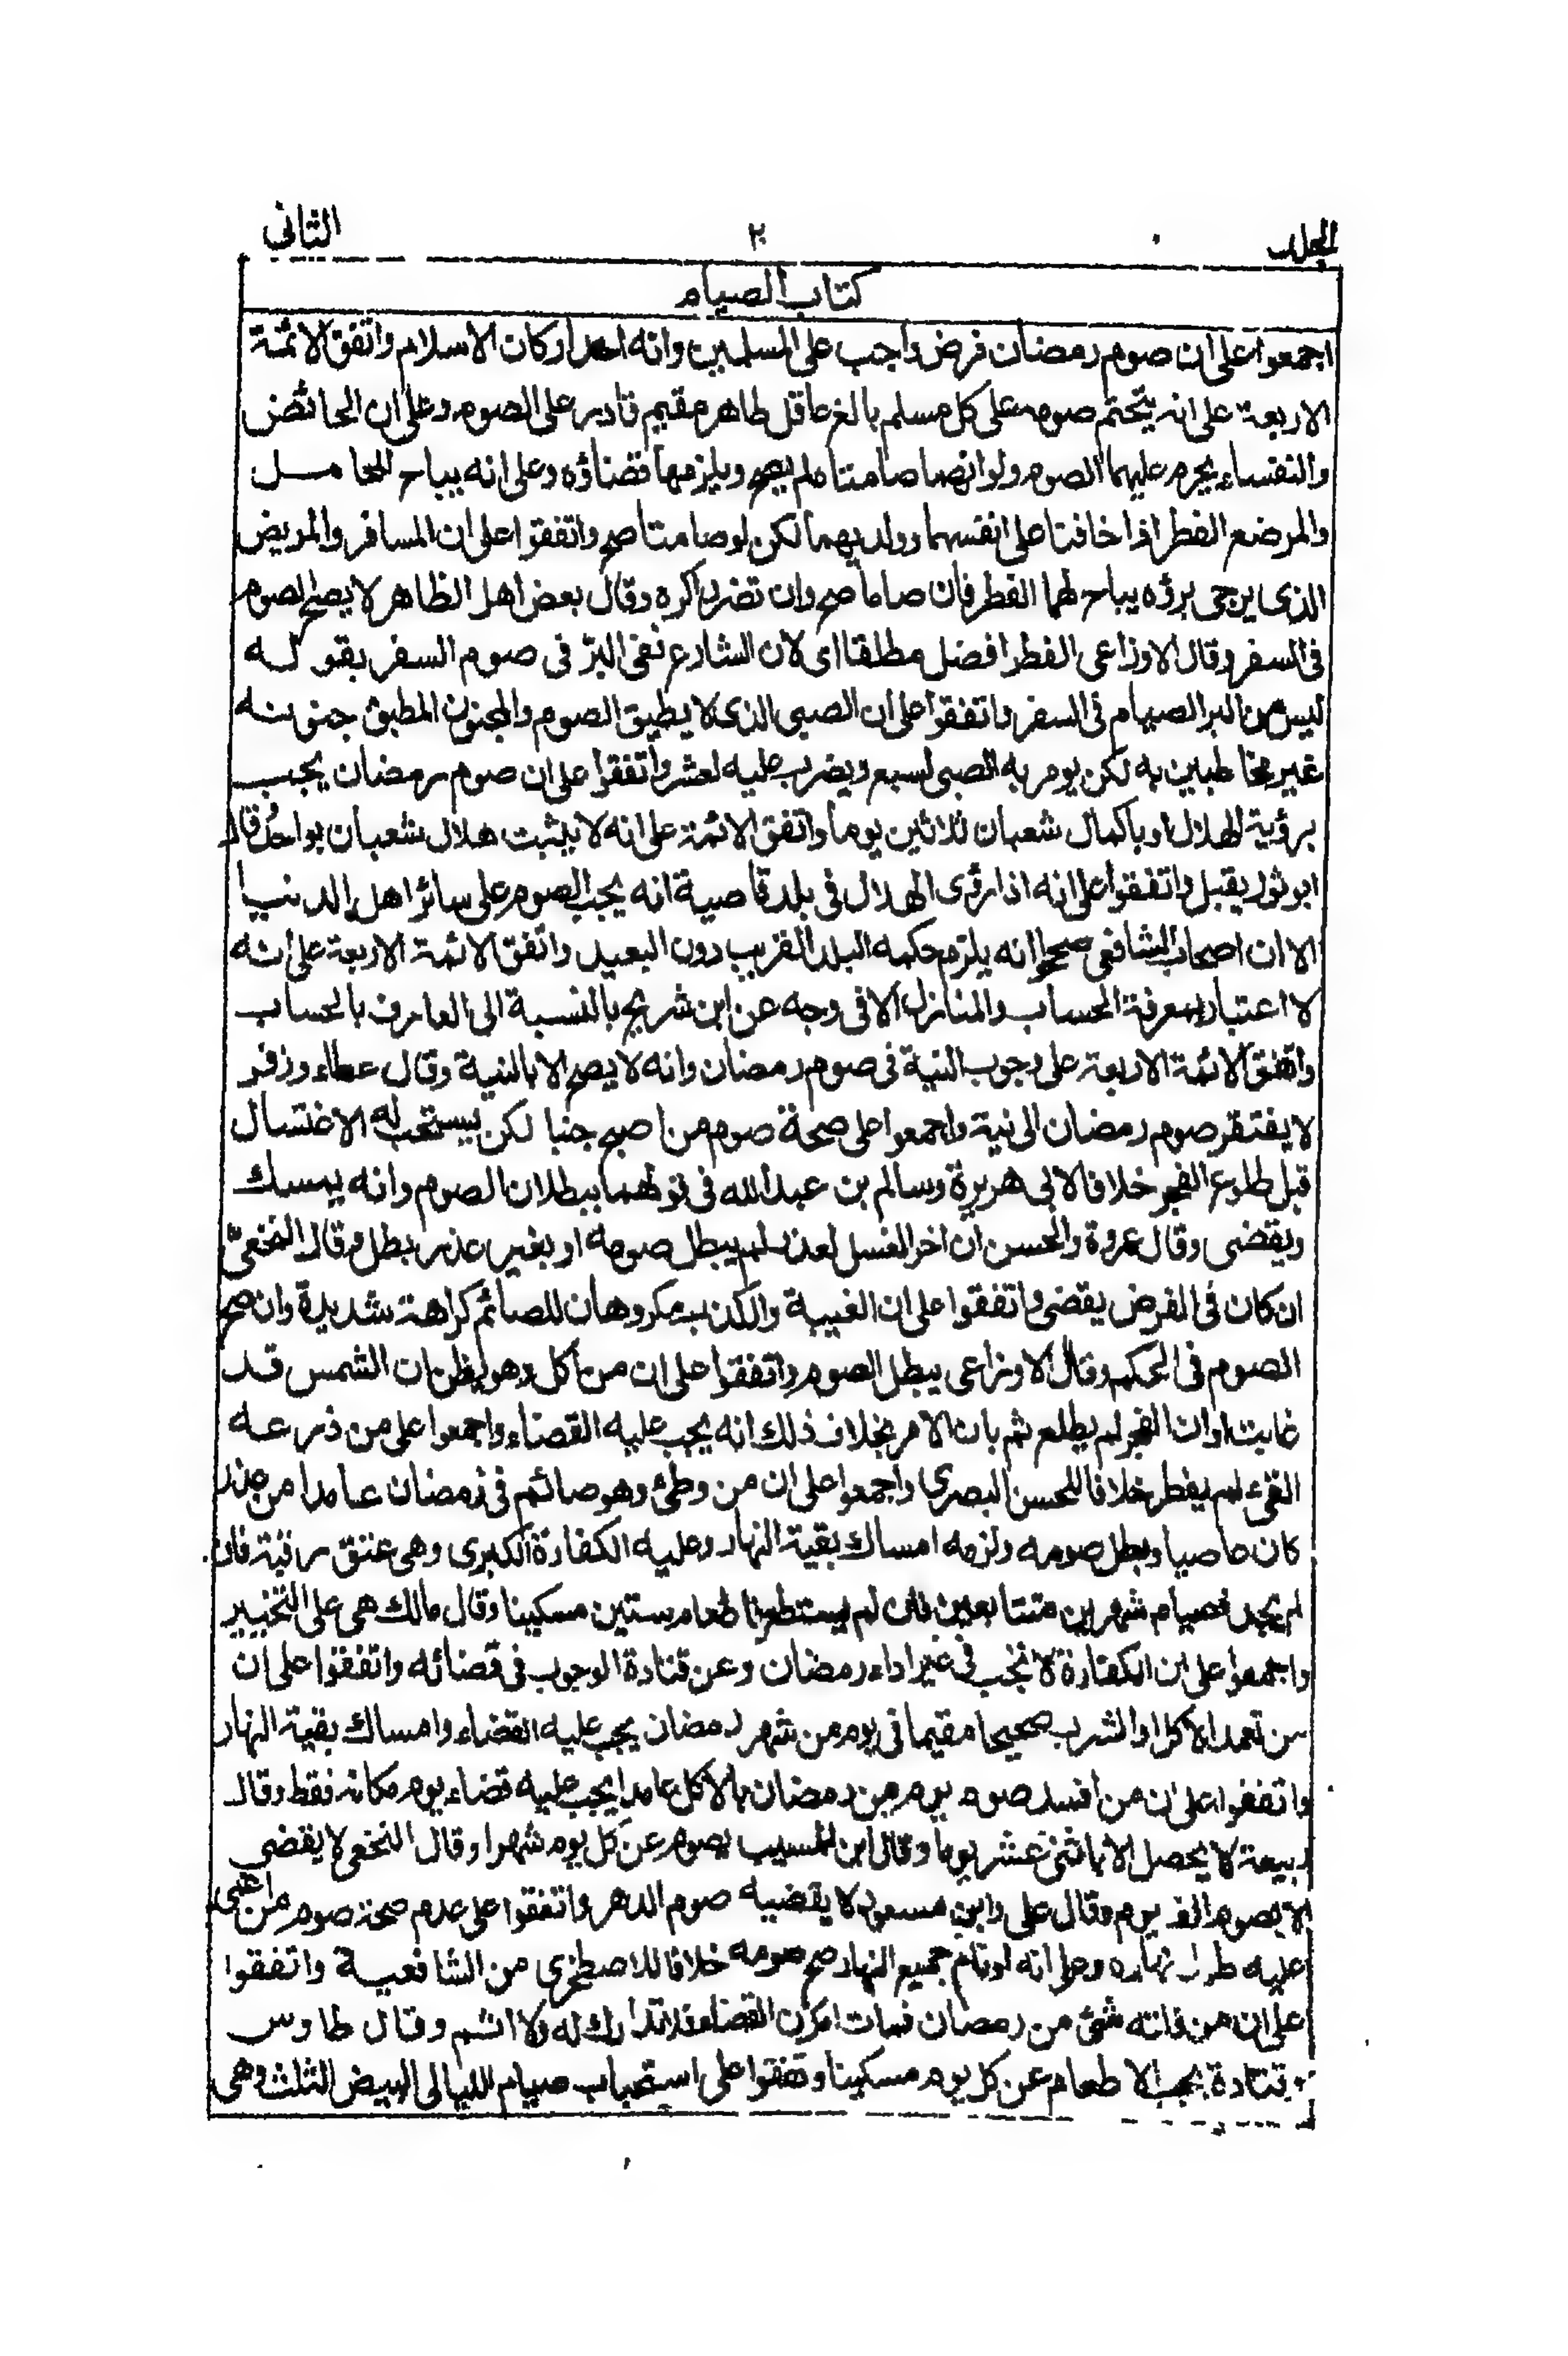 الجلد ٢ الثانى
كتاب الصيام
اجمعوا على ان صوم رمضان فرض واجب على المسلمين وانه احد اركان الاسلام واتفق الائمة
الاربعة على انه يتحتم صومه على كل مسلم بالغ عاقل طاهر مقيم قادر على الصوم وعلى ان الحائض
والنفساء يحرم عليهما الصوم ولو انهما صامتا لم يصح ويلزمها قضاؤه وعلى انه يباح للحامل
والمرضع الفطر اذا خافتا على انفسهما وولديهما لكن لو صامتا صح واتفقوا على ان المسافر والمريض
الذى يرجى برؤه يباح لهما الفطر فان صاما صح وان تضررا كره وقال بعض اهل الظاهر لا يصح الصوم
فى السفر وقال الاوزاعى الفطر افضل مطلقا اى لان الشارع نفى البرّ فى صوم السفر بقوله
ليس من البر الصيام فى السفر واتفقوا على ان الصبى الذى لا يطيق الصوم والمجنون المطبق جنونه
غير مخاطبين به لكن يومر به الصبى لسبع ويضرب عليه لعشر واتفقوا على ان صوم رمضان يجب
برؤية الهلال او باكمال شعبان ثلاثين يوما واتفق الائمة على انه لا يثبت هلال شعبان بواحد قال
ابو ثور يقبل واتفقوا على انه اذا رؤى الهلال فى بلد قاصية انه يجب الصوم على سائر اهل الدنيا
الا ان اصحاب الشافعى صححوا انه يلزم حكمه البلد القريب دون البعيد واتفق الائمة الاربعة على انه
لا اعتبار بمعرفة الحساب والمنازل الا فى وجه عن ابن شريح بالنسبة الى العارف بالحساب
واتفق الائمة الاربعة على وجوب النية فى صوم رمضان وانه لا يصح الا بالنية وقال عطاء وزفر
لا يفتقر صوم رمضان الى نية واجمعوا على صحة صوم من اصبح جنبا لكن يستحب له الاغتسال
قبل طلوع الفجر خلافا لابى هريرة وسالم بن عبد الله فى قولهما ببطلان الصوم وانه يمسك
ويقضى وقال عروة والحسن ان اخر الغسل لعذر لم يبطل صومه او بغير عذر بطل وقال النخعىّ
ان كان فى الفرض يقضى واتفقوا على ان الغيبة والكذب مكروهان للصائم كراهة شديدة وان صح
الصوم فى الحكم وقال الاوزاعى يبطل الصوم واتفقوا على ان من اكل وهو يظن ان الشمس قد
غابت او ان الفجر لم يطلع ثم بان الامر بخلاف ذلك انه يجب عليه القضاء واجمعوا على من ذرعه
القىء لم يفطر خلافا للحسن البصرى واجمعوا على ان من وطئ وهو صائم فى رمضان عامدا من عذر
كان عاصيا وبطل صومه ولزمه امساك بقية النهار وعليه الكفارة الكبرى وهى عتق رقبة فان
لم يجد فصيام شهرين متتابعين فان لم يستطع فاطعام ستين مسكينا وقال مالك هى على التخيير
واجمعوا على ان الكفارة لا تجب فى غير اداء رمضان وعن قتادة الوجوب فى قضائه واتفقوا على ان
من تعمد الاكل او الشرب صحيحا مقيما فى يوم من شهر رمضان يجب عليه القضاء وامساك بقية النهار
واتفقوا على ان من افسد صوم يوم من رمضان بالاكل عامدا يجب عليه قضاء يوم مكانه فقط وقال
ربيعة لا يحصل الا باثنى عشر يوما وقال ابن المسيب يصوم عن كل يوم شهرا وقال النخعى لا يقضى
الا بصوم الف يوم وقال على وابن مسعود لا يقضيه صوم الدهر واتفقوا على عدم صحة صوم من اغمى
عليه طول نهاره وعلى انه لو نام جميع النهار صح صومه خلافا للاصطخرى من الشافعية واتفقوا
على ان من فاته شئ من رمضان فمات القضاء فلا تدارك له ولا اثم وقال طاوس
وقتادة يجب الاطعام عن كل يوم مسكينا واتفقوا على استحباب صيام الليالى البيض الثلث وهى